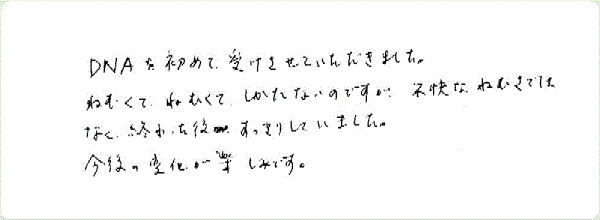 DNAを初めて受けさせていただきました。
ねむくて、ねむくて、しかたないのですが、不快なねむさでは
なく、終わった後、すっきりしていました。
今後の変化が楽しみです。